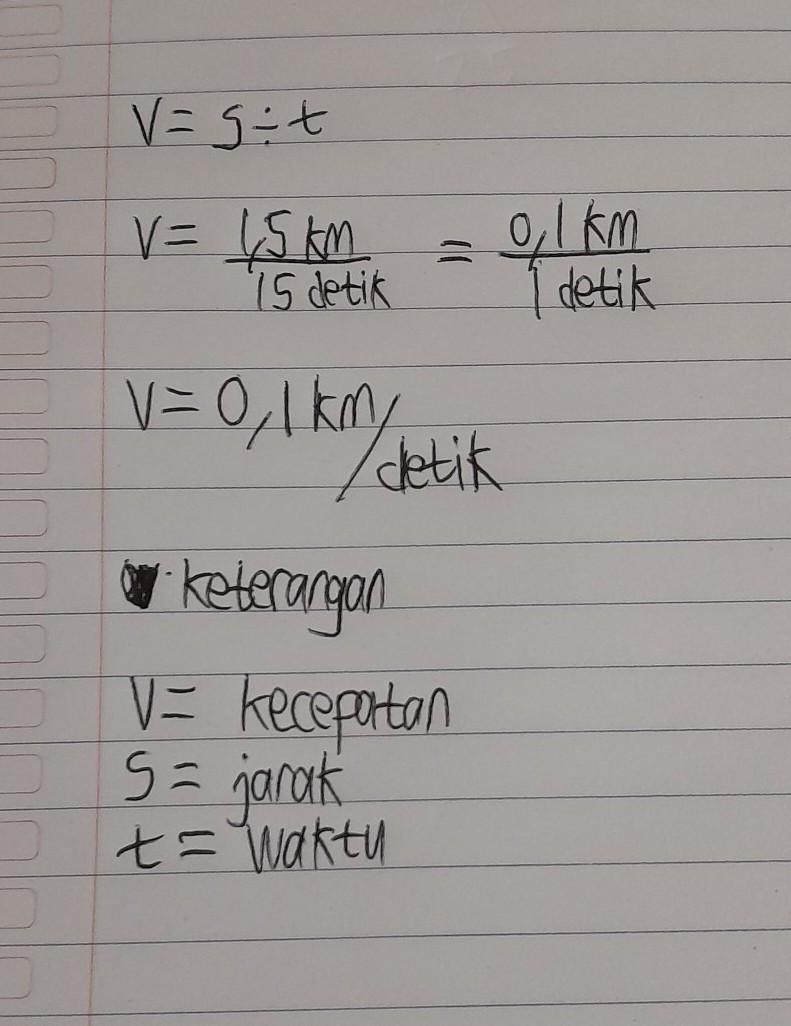 V = s ÷ t
V = 1,5 km / 15 detik = 0,1 km / 1 detik
V = 0,1 km/detik
keterangan
V = kecepatan
S = jarak
t = waktu